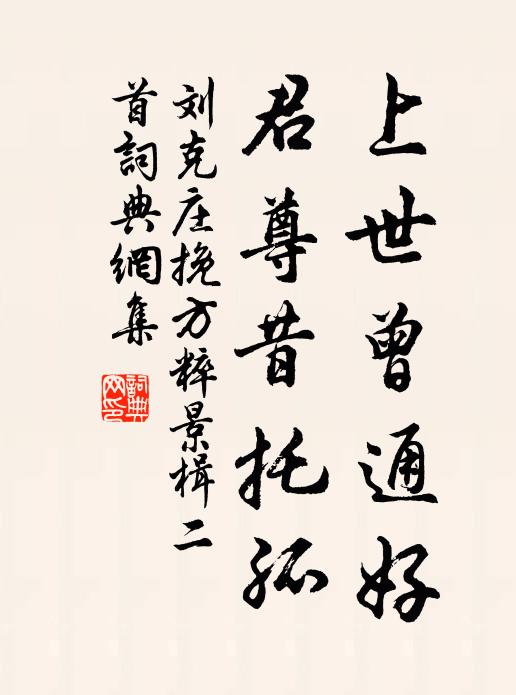 上世曾通好
君尊昔托孤
刘克庄挽方粹景楫二
首詞典網集
詞典
网印